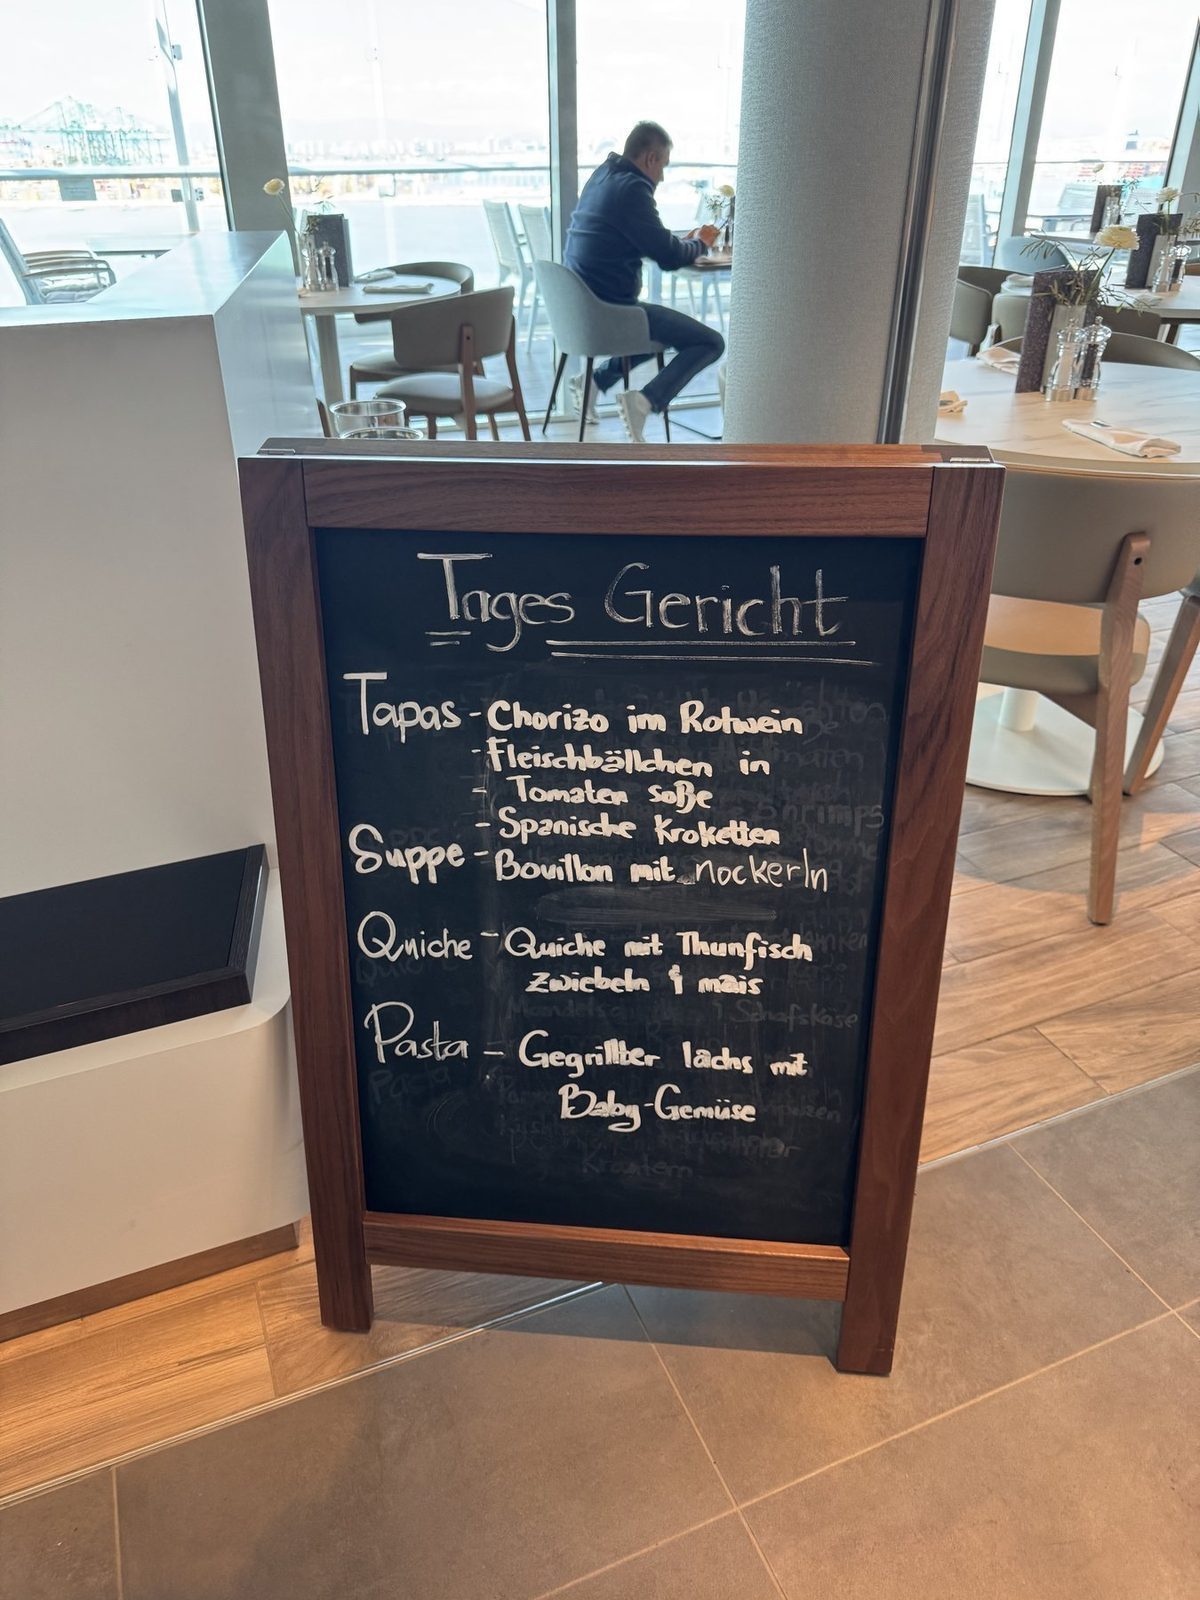 Tages Gericht
Tapas - Chorizo im Rotwein
- Fleischbällchen in
- Tomaten soße
- Spanische Kroketten
Suppe - Bouillon mit nockerln
Quiche - Quiche mit Thunfisch
Zwiebeln & mais
Pasta - Gegrillter lachs mit
Baby-Gemüse